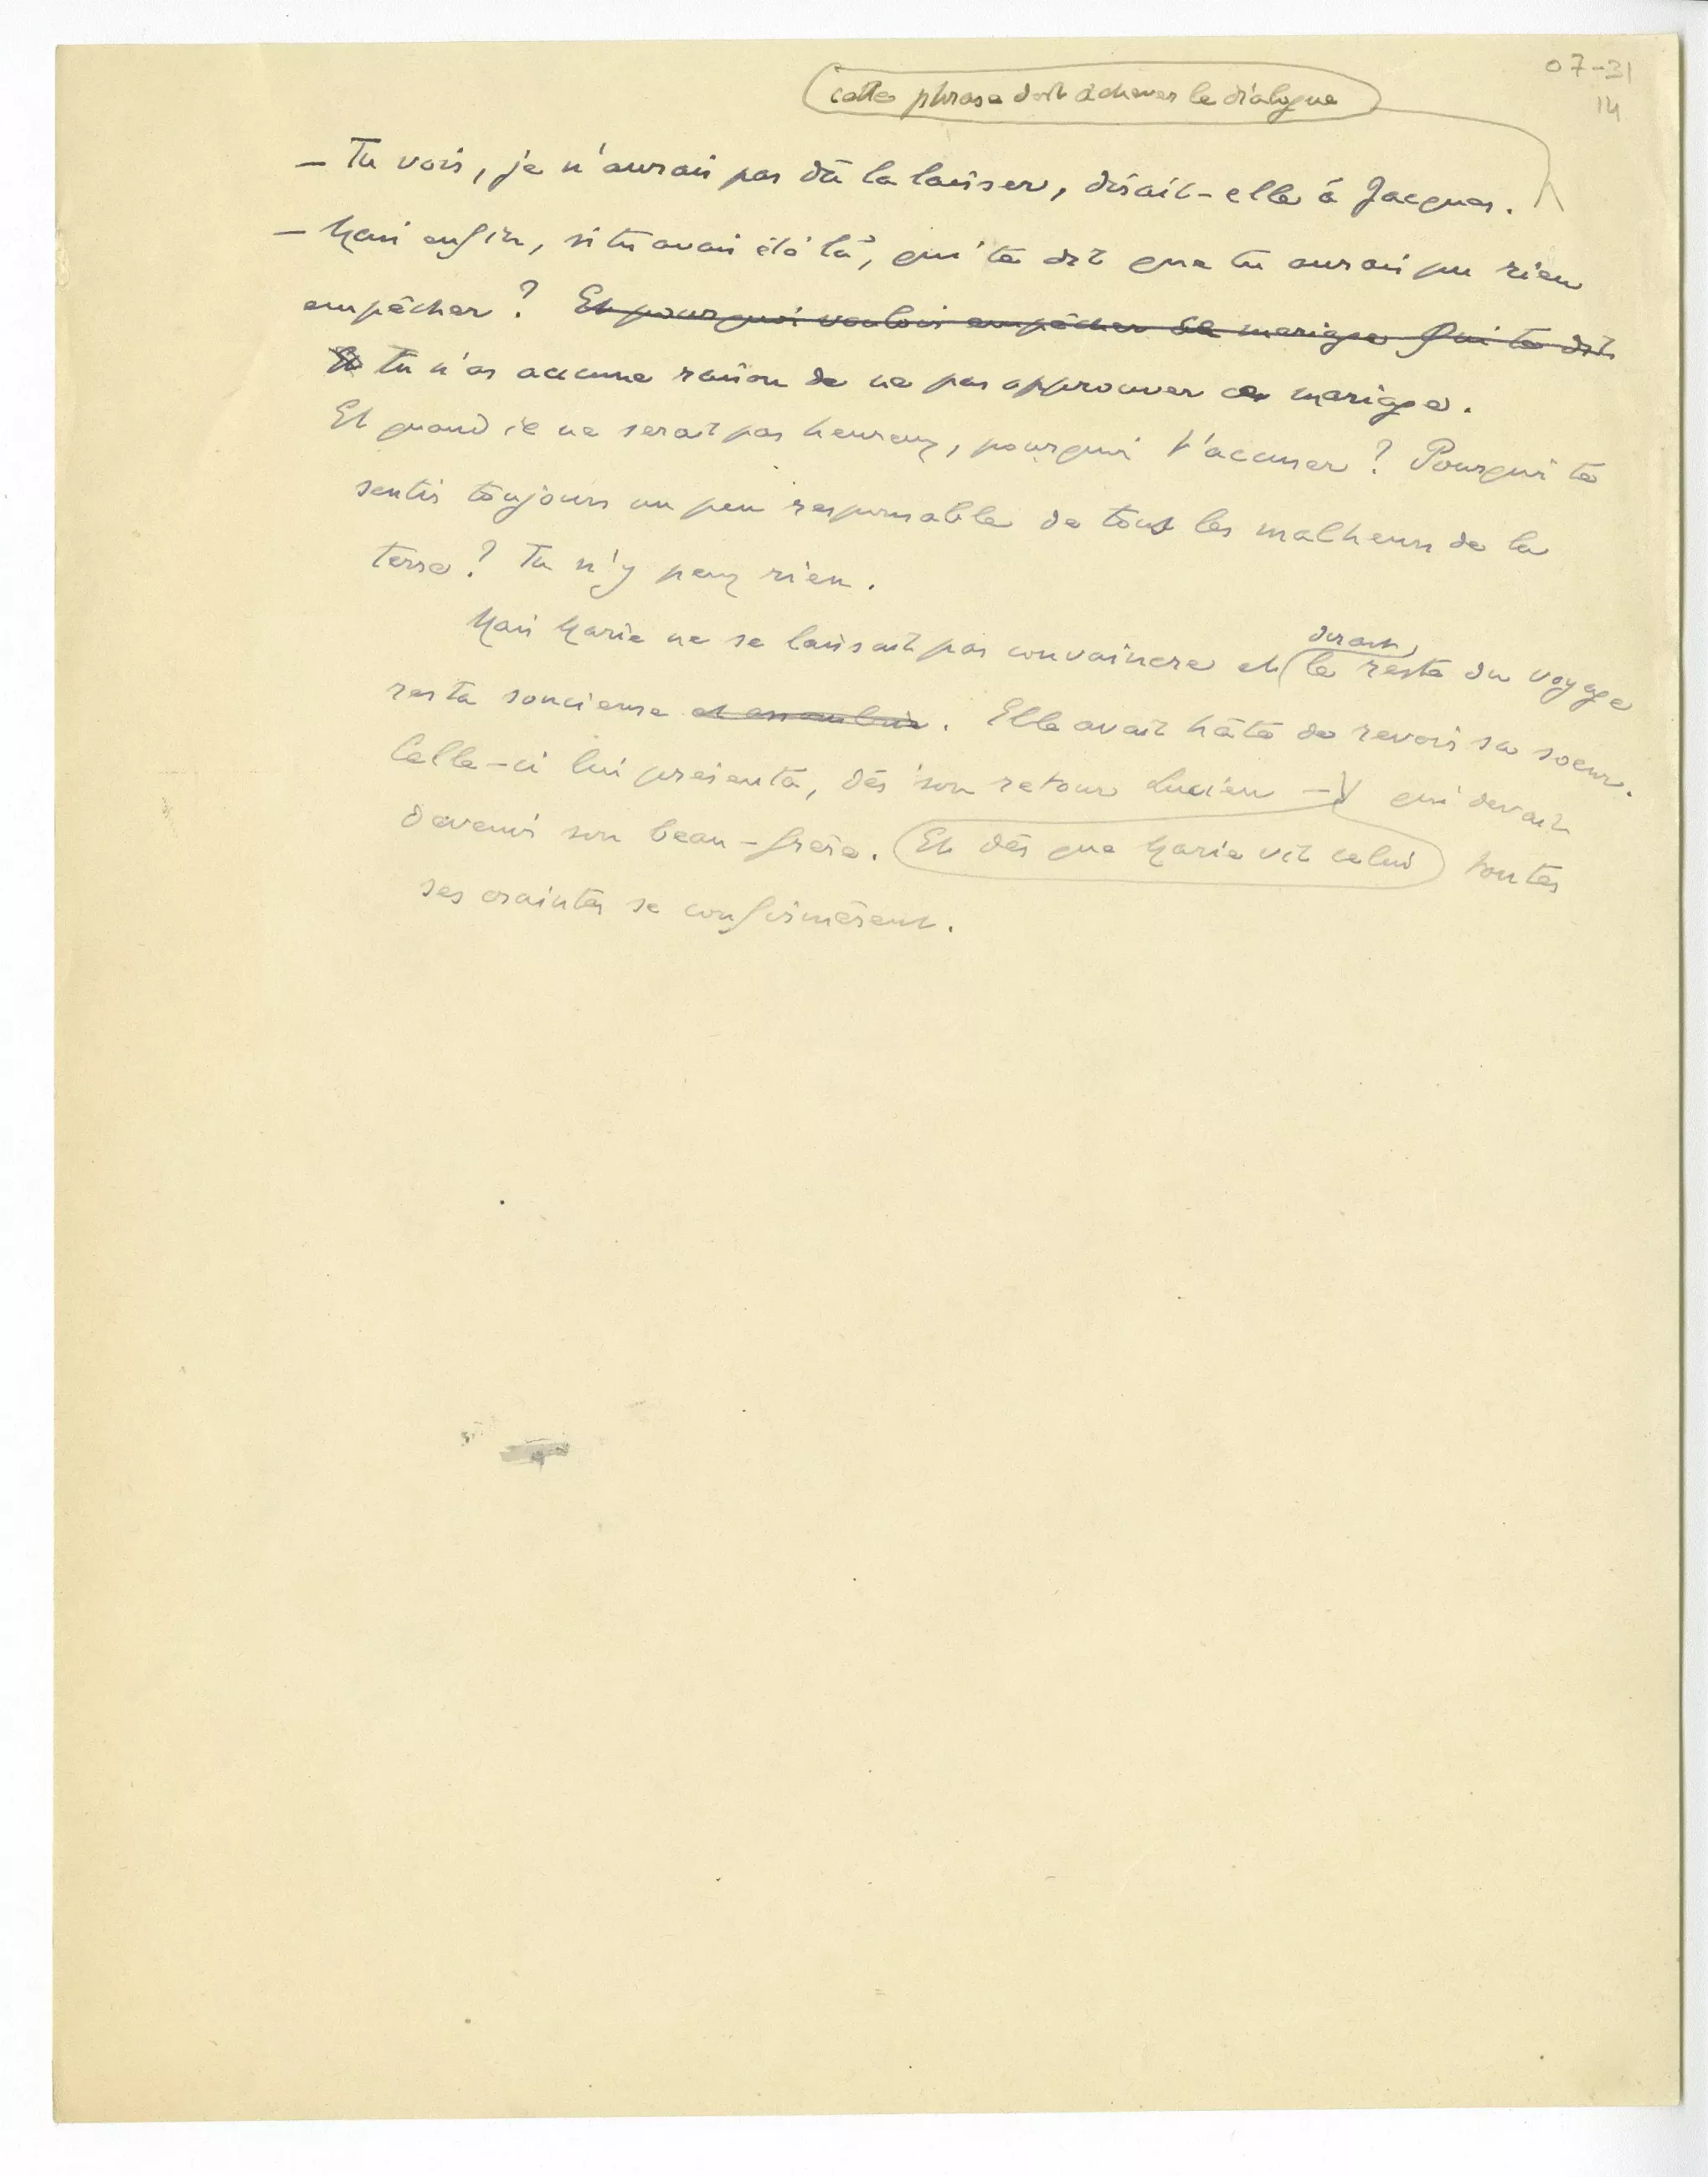 07-31
14
cette phrase doit achever le dialogue
– Tu vois, je n'aurais pas dû la laisser, disait-elle à Jacques.
– Mais enfin, si tu avais été là, qui te dit que tu aurais pu rien
empêcher ? Et pourquoi vouloir empêcher ce mariage Qui te dit
tu n'as aucune raison de ne pas approuver ce mariage.
Et quand il ne serait pas heureux, pourquoi t'accuser ? Pourquoi te
sentir toujours un peu responsable de tous les malheurs de la
terre ? Tu n'y peux rien.
durant
Mais Marie ne se laissait pas convaincre et le reste du voyage
resta soucieuse et . Elle avait hâte de revoir sa soeur.
Celle-ci lui présenta, dès son retour Lucien – qui devait
devenir son beau-frère. Et dès que Marie vit celui toutes
ses craintes se confirmèrent.